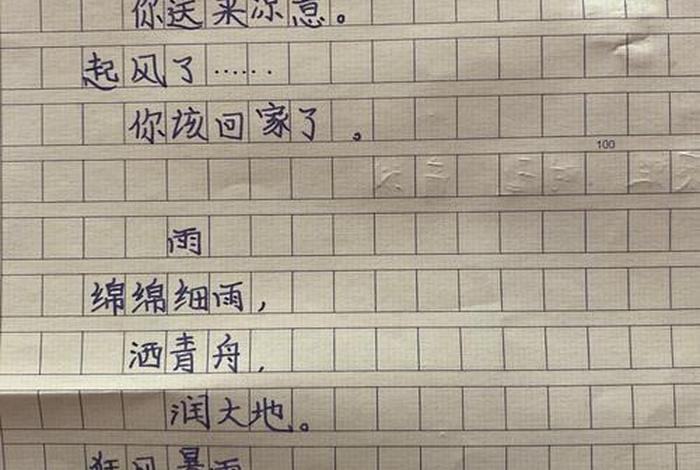 你送来凉意。
起风了……
你该回家了。
100
雨
绵绵细雨，
洒青舟，
润大地。
狂风暴雨